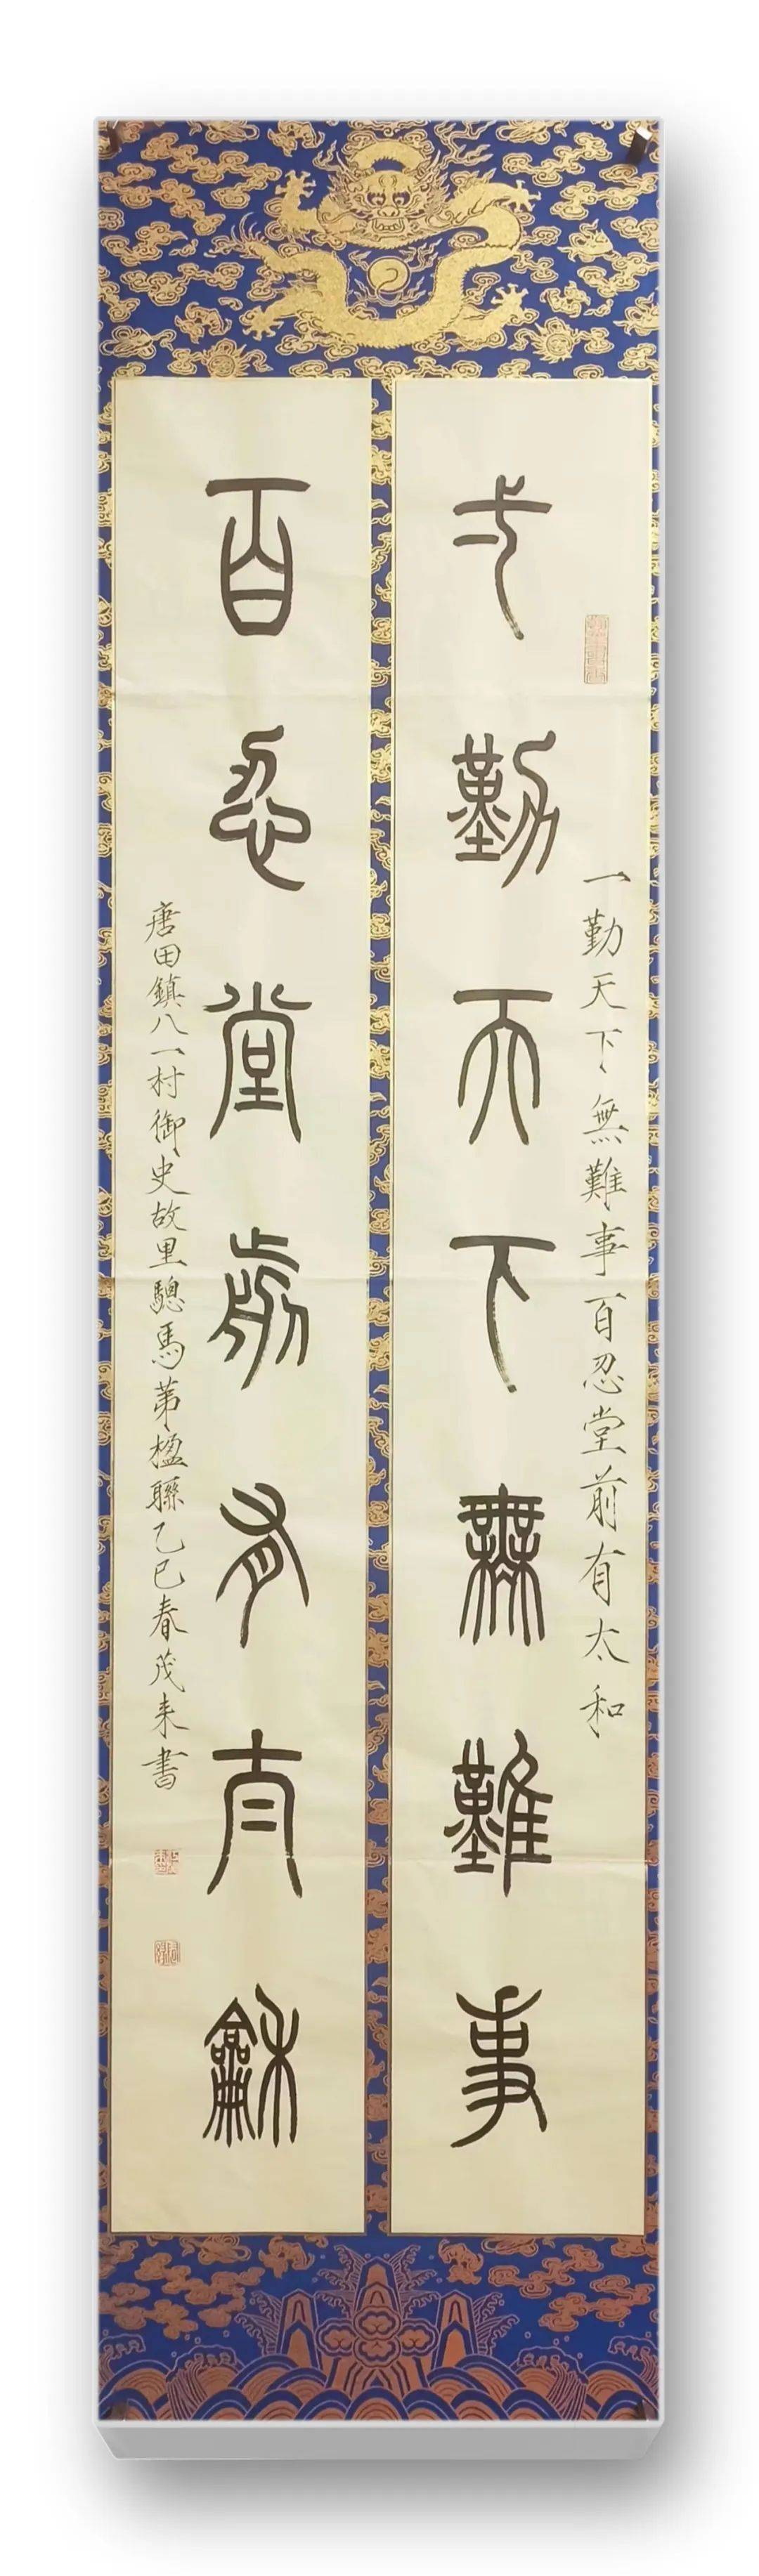 弌勤天下無難事
一勤天下無難事百忍堂前有太和
百忍堂前有太龢
唐田鎮八一村御史故里驄馬第楹聯乙巳春茂来書